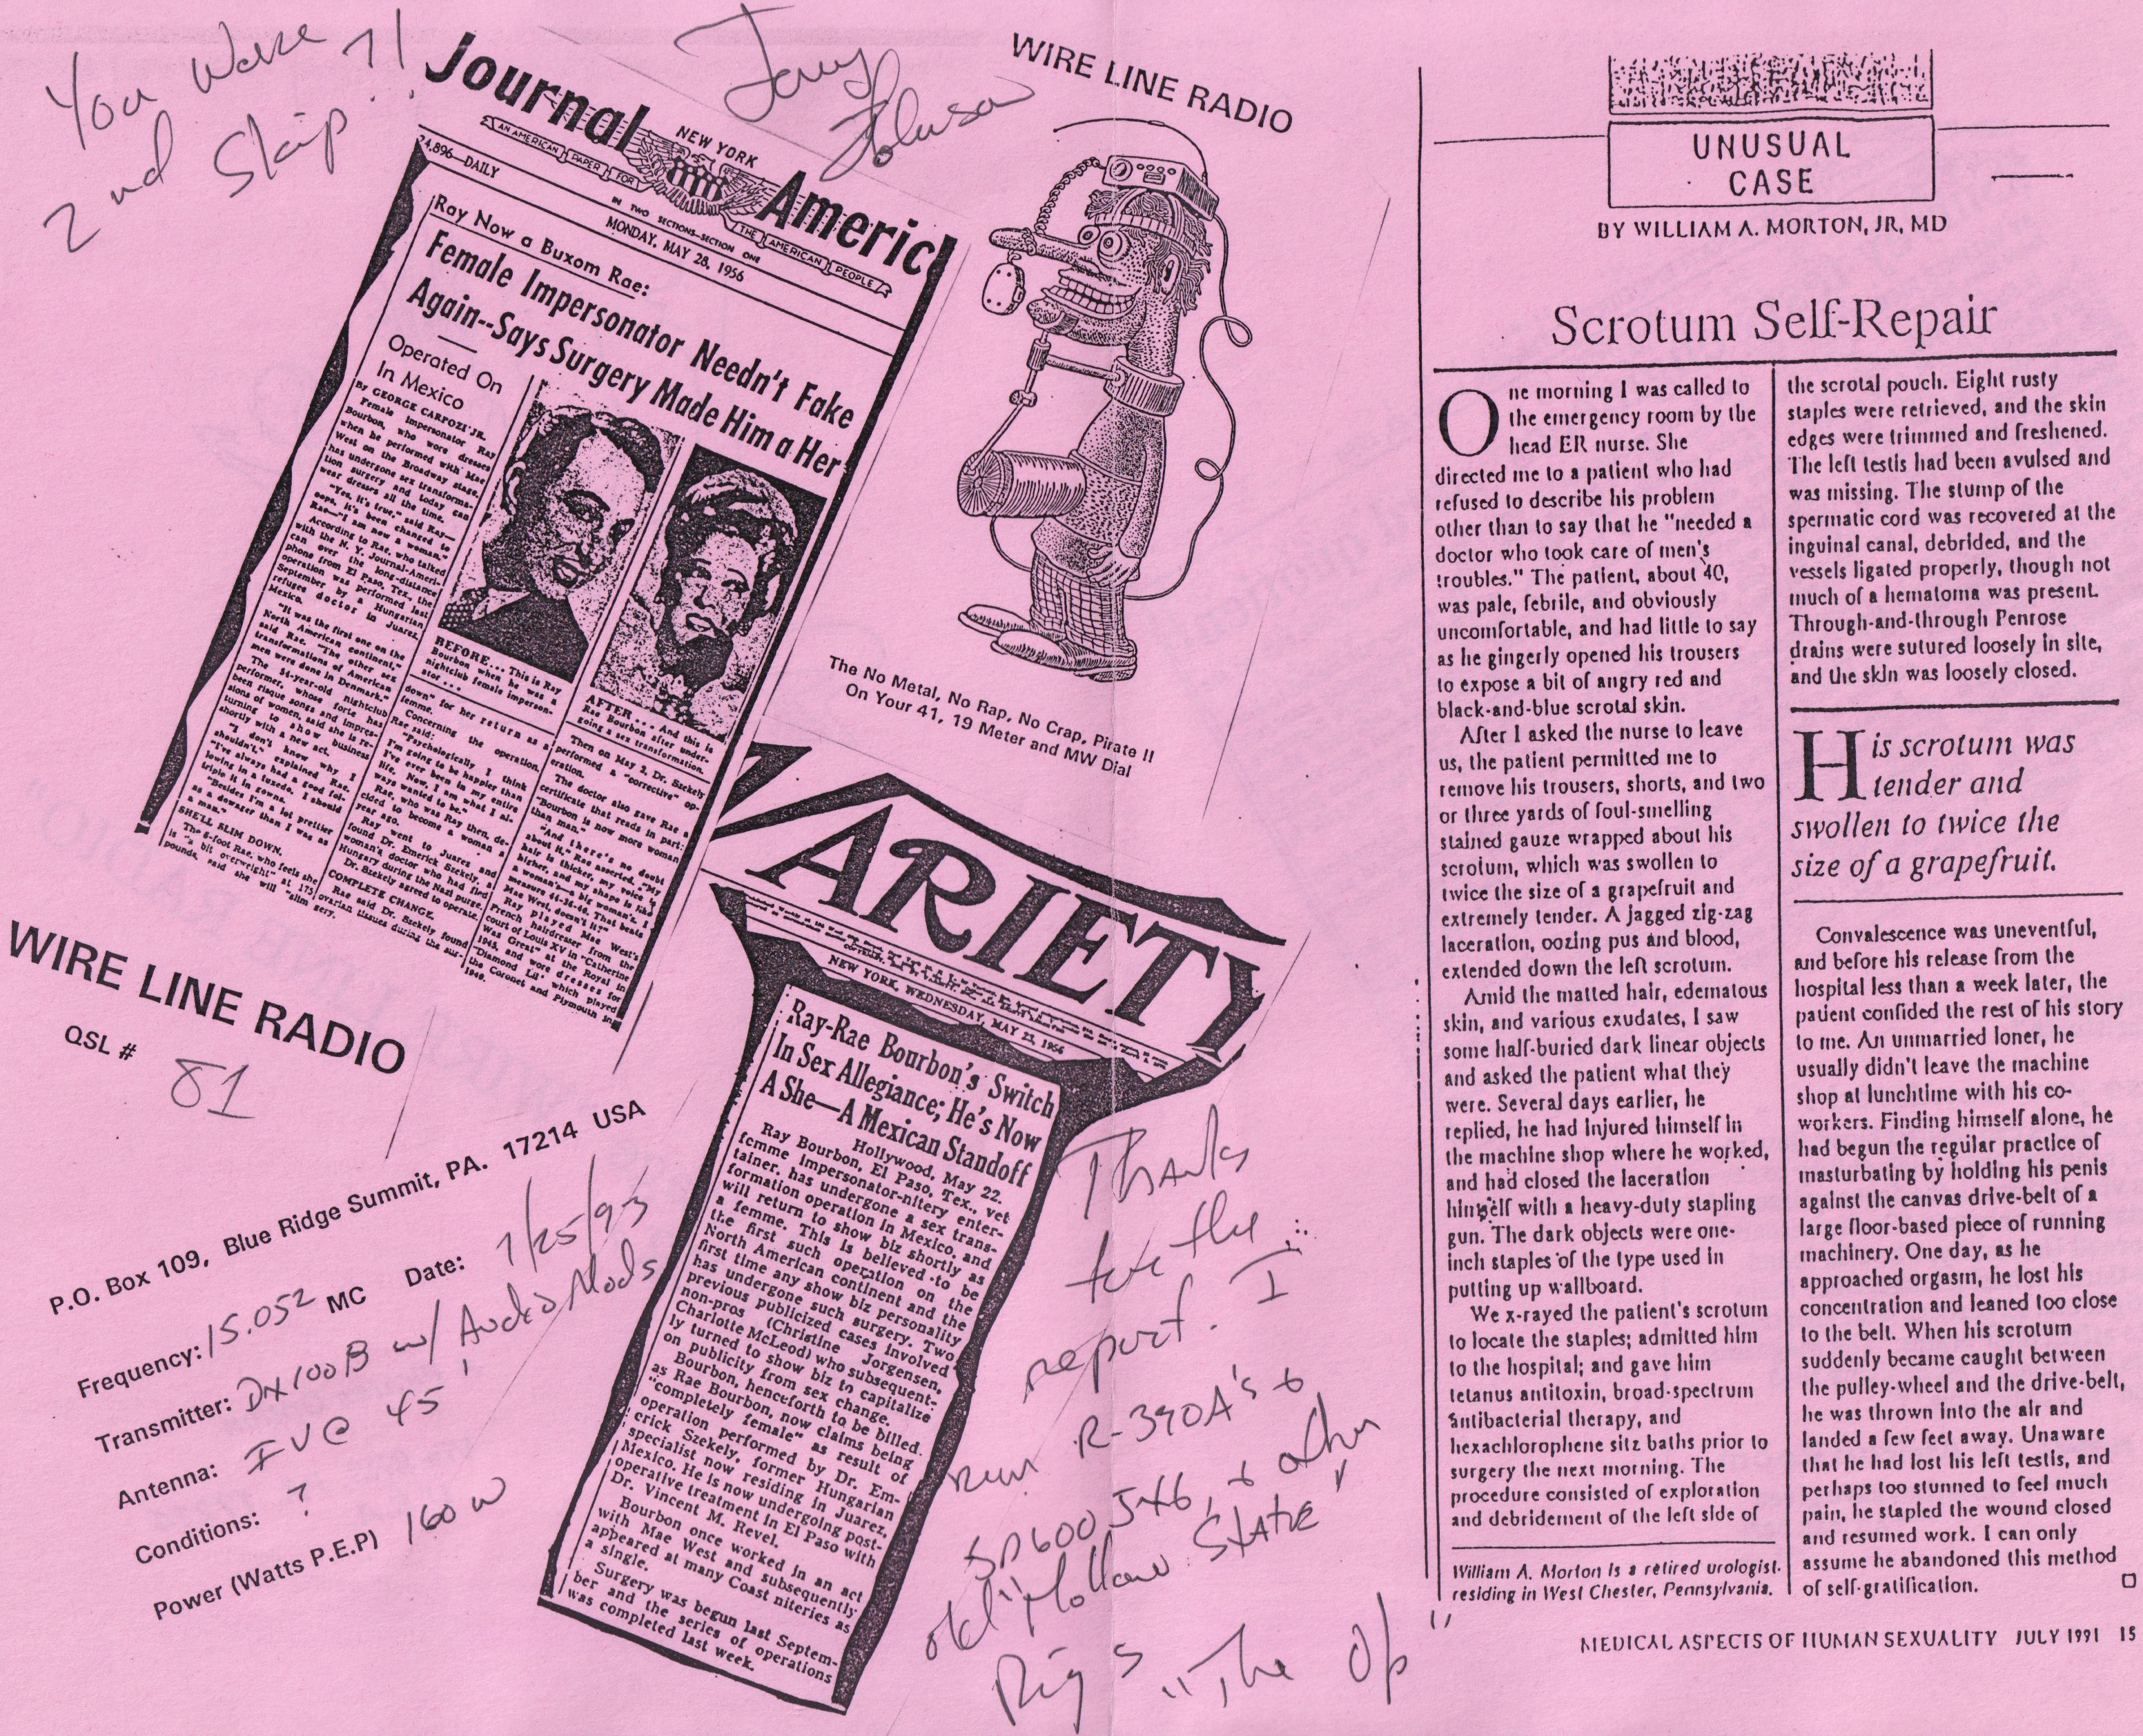 You Were
2nd Skip..?!
Journal
NEW YORK
Americ
AN AMERICAN PAPER FOR THE AMERICAN PEOPLE
24,896—DAILY
IN TWO SECTIONS—SECTION ONE
MONDAY, MAY 28, 1956
Ray Now a Buxom Rae:
Female Impersonator Needn't Fake
Again--Says Surgery Made Him a Her
Operated On
In Mexico
By GEORGE CARPOZI JR.
Female Impersonator Ray
Bourbon, who wore dresses
when he performed with Mae
West on the Broadway stage,
has undergone sex transforma-
tion surgery and today can
wear dresses all the time.
"Yes, it's true," said Ray—
oops, it's been changed to
Rae—"I am now a woman."
According to Rae, who talked
with the N. Y. Journal-Ameri-
can over the long-distance
phone from El Paso, Tex., the
operation was performed last
September by a Hungarian
refugee doctor in Juarez,
Mexico.
"It was the first one on the
North American continent,"
said Rae. "The other sex
transformations of American
men were done in Denmark."
The 54-year-old nightclub
performer, whose forte has
been risque songs and impres-
sions of women, said she is re-
turning to show business
shortly with a new act.
"I don't know why I
shouldn't," explained Rae.
"I've always had a good fol-
lowing in a tuxedo. I should
triple it in gowns.
"Besides I'm a lot prettier
as a dowager than I was as
a man."
SHE'LL SLIM DOWN.
The 6-foot Rae, who feels she
is "a bit overweight" at 175
pounds, said she will "slim
BEFORE... This is Ray
Bourbon when he was a
nightclub female imperson-
ator . . .
down" for her return as a
femme.
Concerning the operation,
Rae said:
"Psychologically I think
I'm going to be happier than
I've ever been in my entire
life. Now, I am what I al-
ways wanted to be."
Rae, who was Ray then, de-
cided to become a woman a
year ago.
Ray went to Juarez and
found Dr. Emerick Szekely, a
woman's doctor who had fled
Hungary during the Nazi purge.
Dr. Szekely agreed to operate.
COMPLETE CHANGE.
Rae said Dr. Szekely found
ovarian tissues during the sur-
gery.
AFTER . . . And this is
Rae Bourbon after under-
going a sex transformation.
Then on May 2, Dr. Szekely
performed a "corrective" op-
eration.
The doctor also gave Rae a
certificate that reads in part:
"Bourbon is now more woman
than man."
"And there's no doubt
about it," Rae asserted. "My
hair is thicker, my voice is
higher, and my shape is like
a woman's—a big woman's. I
measure 44-34-46. That beats
Mae West, doesn't it?"
Ray played Mae West's
French hairdresser from the
court of Louis XV in "Catherine
Was Great" at the Royal in
1945, and wore dresses for
"Diamond Lil" which played
the Coronet and Plymouth in
1949.
WIRE LINE RADIO
The No Metal, No Rap, No Crap, Pirate !!
On Your 41, 19 Meter and MW Dial
VARIETY
NEW YORK, WEDNESDAY, MAY 23, 1956
Ray-Rae Bourbon's Switch
In Sex Allegiance; He's Now
A She—A Mexican Standoff
Hollywood, May 22.
Ray Bourbon, El Paso, Tex., vet
femme impersonator-nitery enter-
tainer, has undergone a sex trans-
formation operation in Mexico, and
will return to show biz shortly as
a femme. This is believed to be
the first such operation on the
North American continent and the
first time any show biz personality
has undergone such surgery. Two
previous publicized cases involved
non-pros (Christine Jorgensen,
Charlotte McLeod) who subsequent-
ly turned to show biz to capitalize
on publicity from sex change.
Bourbon, henceforth to be billed.
as Rae Bourbon, now claims being
"completely female" as result of
operation performed by Dr. Em-
erick Szekely, former Hungarian
specialist now residing in Juarez,
Mexico. He is now undergoing post-
operative treatment in El Paso with
Dr. Vincent M. Revel.
Bourbon once worked in an act
with Mae West and subsequently
appeared at many Coast niteries as
a single.
Surgery was begun last Septem-
ber and the series of operations
was completed last week.
WIRE LINE RADIO
QSL # 81
P.O. Box 109, Blue Ridge Summit, PA. 17214 USA
Frequency: 15.052 MC Date: 7/25/93
Transmitter: DX100B w/ Audio Mods
Antenna: IV @ 45'
Conditions: ?
Power (Watts P.E.P) 160 W
Thanks
for the
report. I
run R-390A's &
SP600JX6, & other
old "Hollow State"
Rigs "The Op"
UNUSUAL
CASE
BY WILLIAM A. MORTON, JR, MD
Scrotum Self-Repair
One morning I was called to
the emergency room by the
head ER nurse. She
directed me to a patient who had
refused to describe his problem
other than to say that he "needed a
doctor who took care of men's
troubles." The patient, about 40,
was pale, febrile, and obviously
uncomfortable, and had little to say
as he gingerly opened his trousers
to expose a bit of angry red and
black-and-blue scrotal skin.
After I asked the nurse to leave
us, the patient permitted me to
remove his trousers, shorts, and two
or three yards of foul-smelling
stained gauze wrapped about his
scrotum, which was swollen to
twice the size of a grapefruit and
extremely tender. A jagged zig-zag
laceration, oozing pus and blood,
extended down the left scrotum.
Amid the matted hair, edematous
skin, and various exudates, I saw
some half-buried dark linear objects
and asked the patient what they
were. Several days earlier, he
replied, he had injured himself in
the machine shop where he worked,
and had closed the laceration
himself with a heavy-duty stapling
gun. The dark objects were one-
inch staples of the type used in
putting up wallboard.
We x-rayed the patient's scrotum
to locate the staples; admitted him
to the hospital; and gave him
tetanus antitoxin, broad-spectrum
antibacterial therapy, and
hexachlorophene sitz baths prior to
surgery the next morning. The
procedure consisted of exploration
and debridement of the left side of
William A. Morton is a retired urologist
residing in West Chester, Pennsylvania.
the scrotal pouch. Eight rusty
staples were retrieved, and the skin
edges were trimmed and freshened.
The left testis had been avulsed and
was missing. The stump of the
spermatic cord was recovered at the
inguinal canal, debrided, and the
vessels ligated properly, though not
much of a hematoma was present.
Through-and-through Penrose
drains were sutured loosely in site,
and the skin was loosely closed.
His scrotum was
tender and
swollen to twice the
size of a grapefruit.
Convalescence was uneventful,
and before his release from the
hospital less than a week later, the
patient confided the rest of his story
to me. An unmarried loner, he
usually didn't leave the machine
shop at lunchtime with his co-
workers. Finding himself alone, he
had begun the regular practice of
masturbating by holding his penis
against the canvas drive-belt of a
large floor-based piece of running
machinery. One day, as he
approached orgasm, he lost his
concentration and leaned too close
to the belt. When his scrotum
suddenly became caught between
the pulley-wheel and the drive-belt,
he was thrown into the air and
landed a few feet away. Unaware
that he had lost his left testis, and
perhaps too stunned to feel much
pain, he stapled the wound closed
and resumed work. I can only
assume he abandoned this method
of self-gratification.
MEDICAL ASPECTS OF HUMAN SEXUALITY JULY 1991 15